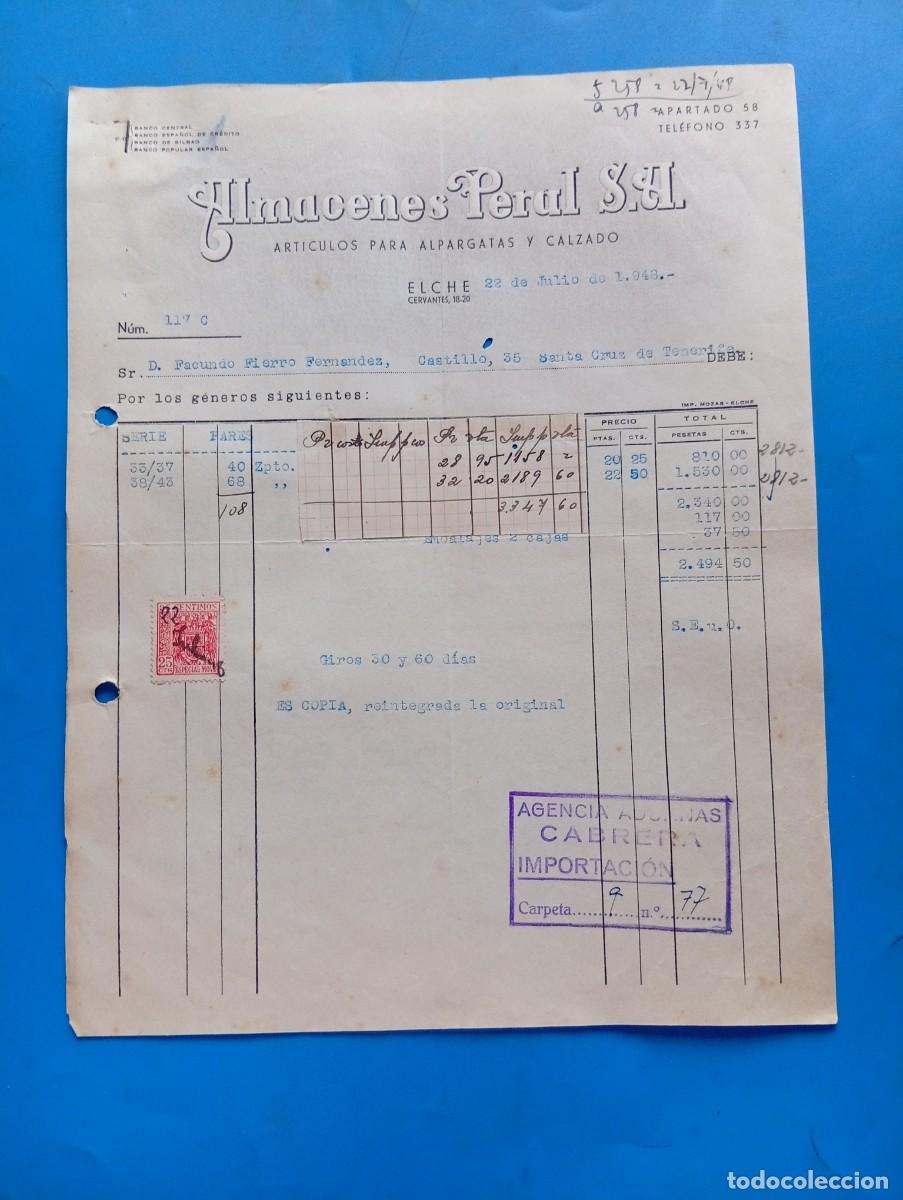 5 258 = 22/7/48
a 258
BANCO CENTRAL
BANCO ESPAÑOL DE CRÉDITO
BANCO DE BILBAO
BANCO POPULAR ESPAÑOL
APARTADO 58
TELÉFONO 337
Almacenes Peral S.A.
ARTICULOS PARA ALPARGATAS Y CALZADO
ELCHE 22 de Julio de 1.948.-
CERVANTES, 18-20
Núm. 117 C
Sr. D. Facundo Fierro Fernandez, Castillo, 35 Santa Cruz de Tenerife DEBE:
Por los géneros siguientes:
IMP. MOZAS - ELCHE
SERIE PARES PRECIO TOTAL
PTAS. CTS. PESETAS CTS.
Pr costo Imp p co Pr vta Imp p vta
33/37 40 Zpto. 28 95 1158 20 25 810 00 2812-
38/43 68 ,, 32 20 2189 60 22 50 1.530 00 2812-
108 3347 60 2.340 00
117 00
Embalajes 2 cajas 37 50
2.494 50
S.E.u.O.
22
CENTIMOS
25 CTS
ESPECIAL MOVIL
Giros 30 y 60 días
ES COPIA, reintegrada la original
AGENCIA ADUANAS
CABRERA
IMPORTACIÓN
Carpeta 9 n.º 77
todocoleccion